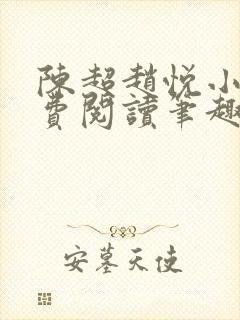 陳超趙悅小
費閱讀筆趣
安墓天使